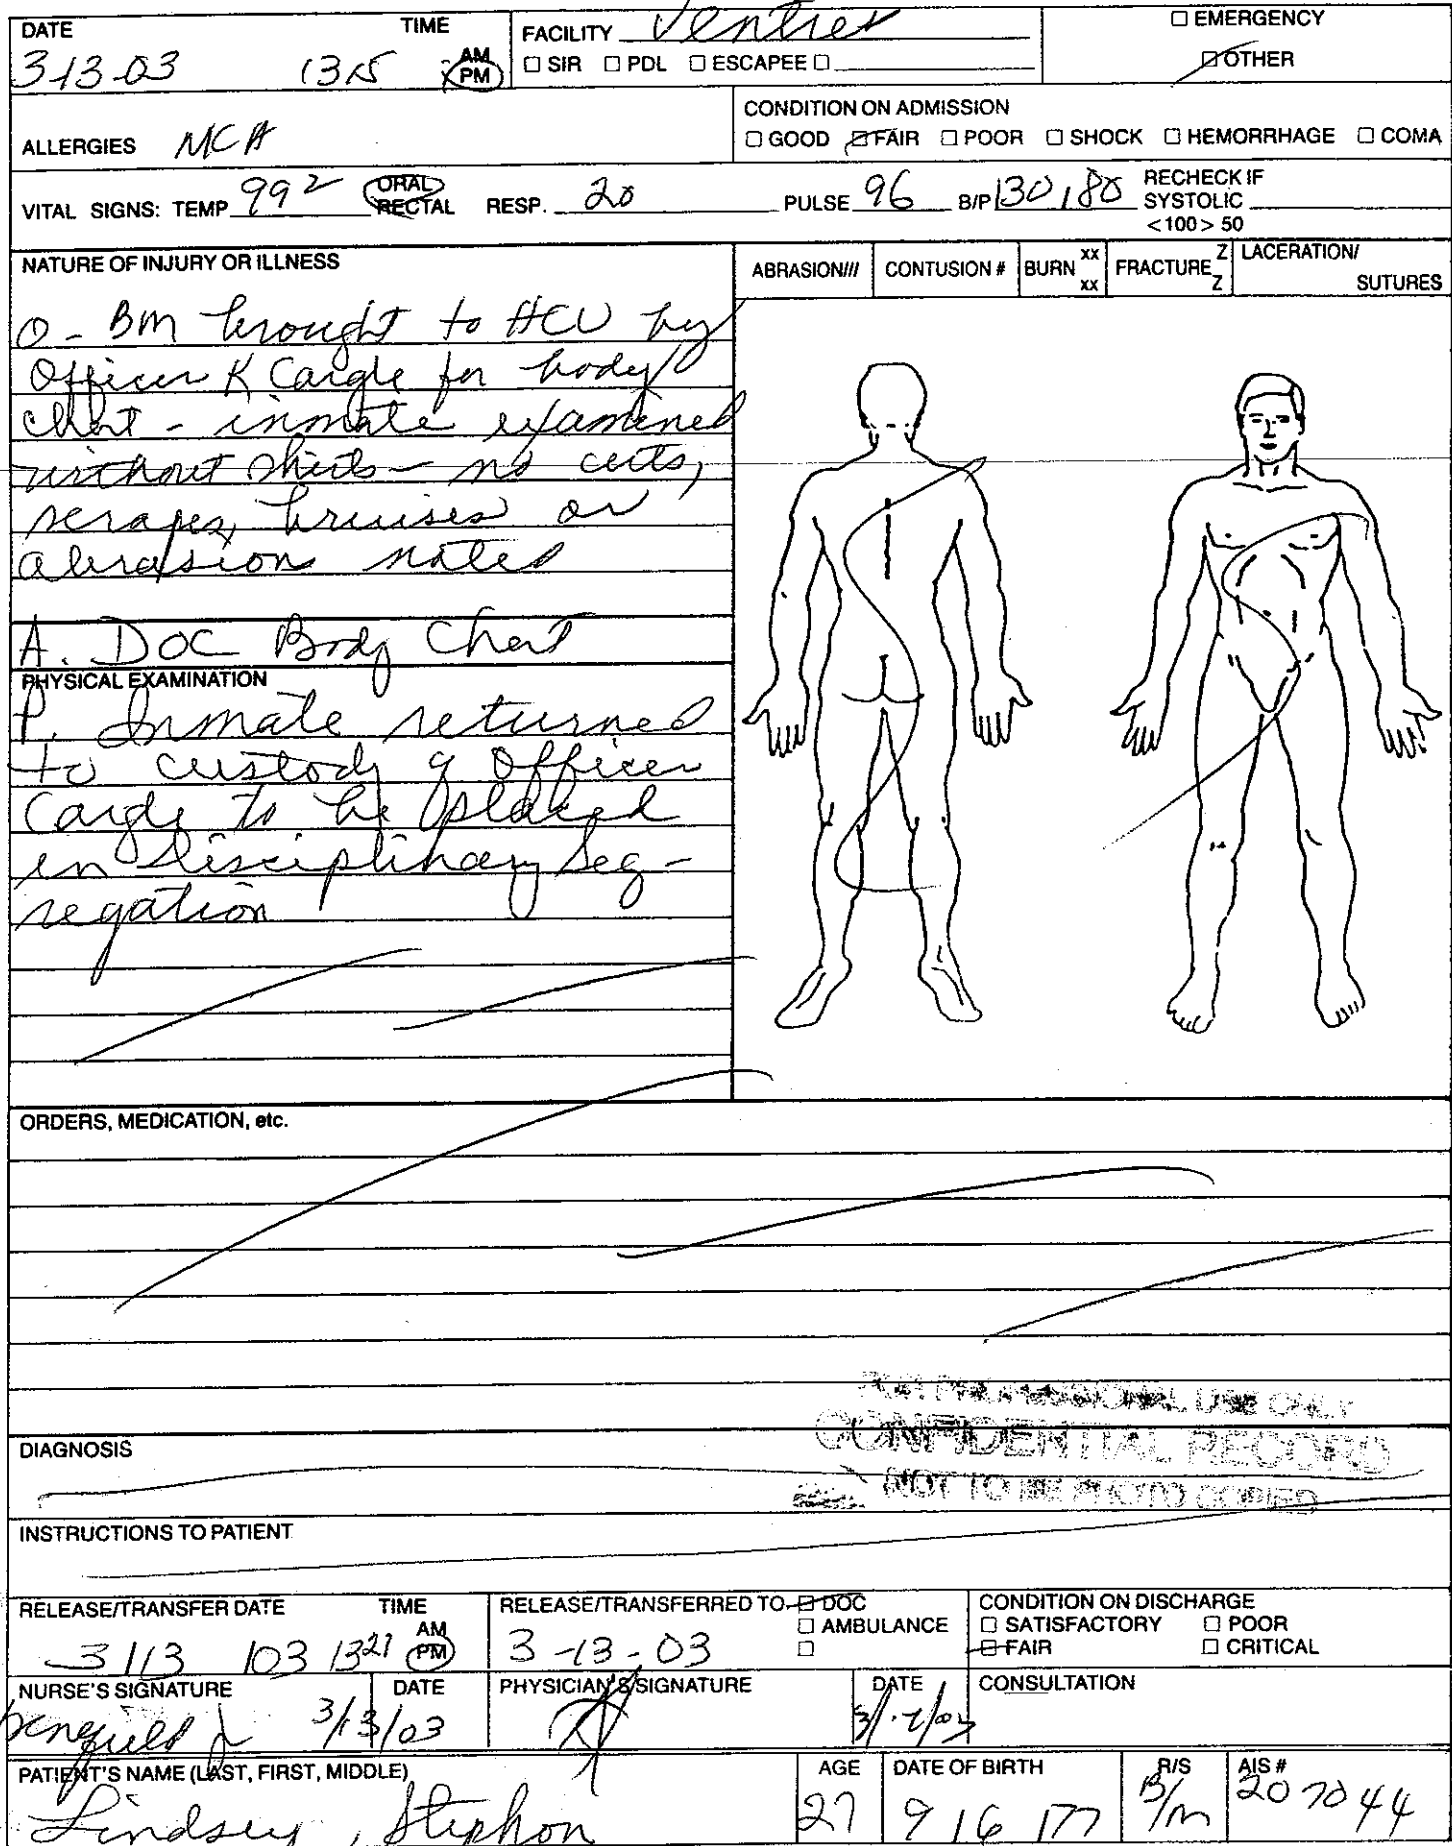 DATE TIME FACILITY Ventress □ EMERGENCY
3-13-03 1315 AM PM □ SIR □ PDL □ ESCAPEE □ □ OTHER
CONDITION ON ADMISSION
ALLERGIES NCA □ GOOD □ FAIR □ POOR □ SHOCK □ HEMORRHAGE □ COMA
VITAL SIGNS: TEMP 99² ORAL RECTAL RESP. 20 PULSE 96 B/P 130/80 RECHECK IF SYSTOLIC <100> 50
NATURE OF INJURY OR ILLNESS ABRASION/// CONTUSION # BURN xx xx FRACTURE Z Z LACERATION/ SUTURES
O - BM brought to HCU by
Officer K Cargle for body
chart - inmate examined
without shirts - no cuts,
scrapes, bruises or
abrasion noted
A. DOC Body Chart
PHYSICAL EXAMINATION
P. Inmate returned
to custody of Officer
Cargle to be placed
in Disciplinary Seg-
regation
ORDERS, MEDICATION, etc.
FOR PROFESSIONAL USE ONLY
CONFIDENTIAL RECORD
NOT TO BE PHOTO COPIED
DIAGNOSIS
INSTRUCTIONS TO PATIENT
RELEASE/TRANSFER DATE TIME RELEASE/TRANSFERRED TO □ DOC CONDITION ON DISCHARGE
AM □ AMBULANCE □ SATISFACTORY □ POOR
3/13/03 1327 PM 3-13-03 □ □ FAIR □ CRITICAL
NURSE'S SIGNATURE DATE PHYSICIAN'S SIGNATURE DATE CONSULTATION
3/13/03
PATIENT'S NAME (LAST, FIRST, MIDDLE) AGE DATE OF BIRTH R/S AIS #
Lindsey, Stephon 27 9 16 77 B/m 207044